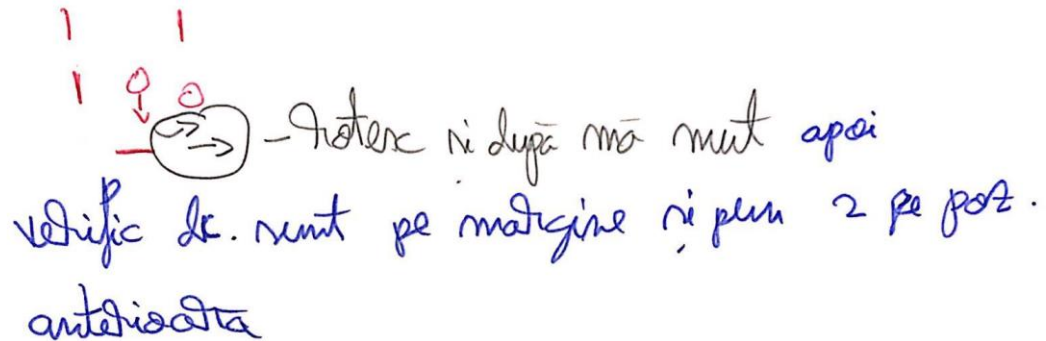 1 1
1 0 0
- Rotesc și după mă mut apoi
verific dc. sunt pe margine și pun 2 pe poz.
anterioară